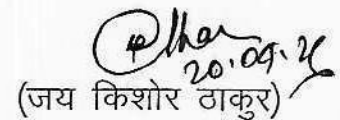 20.09.25
(जय किशोर ठाकुर)